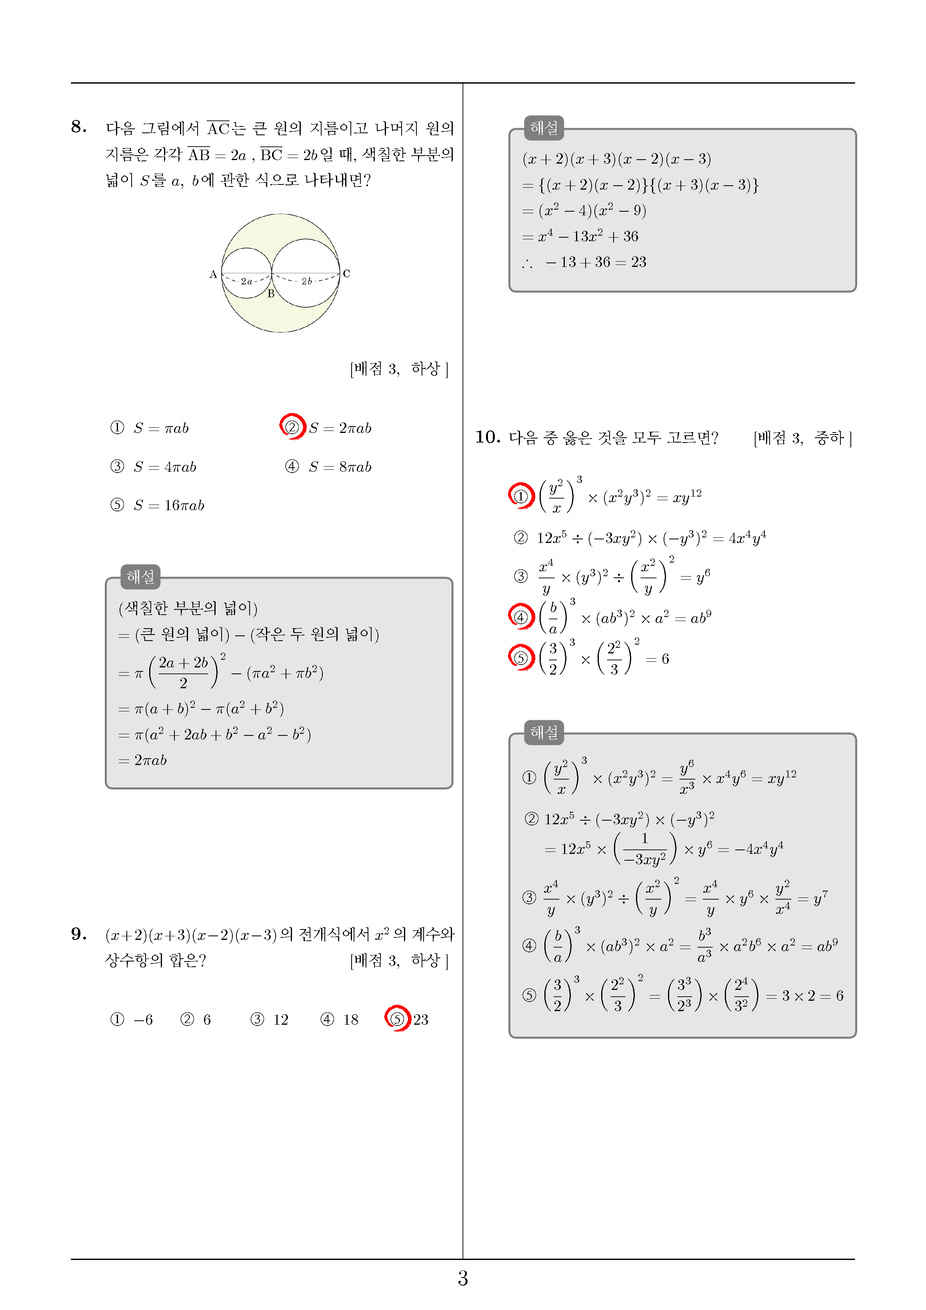 8. 다음 그림에서 AC는 큰 원의 지름이고 나머지 원의
지름은 각각 AB = 2a , BC = 2b일 때, 색칠한 부분의
넓이 S를 a, b에 관한 식으로 나타내면?
A
2a
B
2b
C
[배점 3, 하상 ]
① S = πab ② S = 2πab
③ S = 4πab ④ S = 8πab
⑤ S = 16πab
해설
(색칠한 부분의 넓이)
= (큰 원의 넓이) − (작은 두 원의 넓이)
= π((2a + 2b)/2)² − (πa² + πb²)
= π(a + b)² − π(a² + b²)
= π(a² + 2ab + b² − a² − b²)
= 2πab
9. (x+2)(x+3)(x−2)(x−3)의 전개식에서 x²의 계수와
상수항의 합은? [배점 3, 하상 ]
① −6 ② 6 ③ 12 ④ 18 ⑤ 23
해설
(x + 2)(x + 3)(x − 2)(x − 3)
= {(x + 2)(x − 2)}{(x + 3)(x − 3)}
= (x² − 4)(x² − 9)
= x⁴ − 13x² + 36
∴ −13 + 36 = 23
10. 다음 중 옳은 것을 모두 고르면? [배점 3, 중하 ]
① (y²/x)³ × (x²y³)² = xy¹²
② 12x⁵ ÷ (−3xy²) × (−y³)² = 4x⁴y⁴
③ x⁴/y × (y³)² ÷ (x²/y)² = y⁶
④ (b/a)³ × (ab³)² × a² = ab⁹
⑤ (3/2)³ × (2²/3)² = 6
해설
① (y²/x)³ × (x²y³)² = y⁶/x³ × x⁴y⁶ = xy¹²
② 12x⁵ ÷ (−3xy²) × (−y³)²
= 12x⁵ × (1/−3xy²) × y⁶ = −4x⁴y⁴
③ x⁴/y × (y³)² ÷ (x²/y)² = x⁴/y × y⁶ × y²/x⁴ = y⁷
④ (b/a)³ × (ab³)² × a² = b³/a³ × a²b⁶ × a² = ab⁹
⑤ (3/2)³ × (2²/3)² = (3³/2³) × (2⁴/3²) = 3 × 2 = 6
3